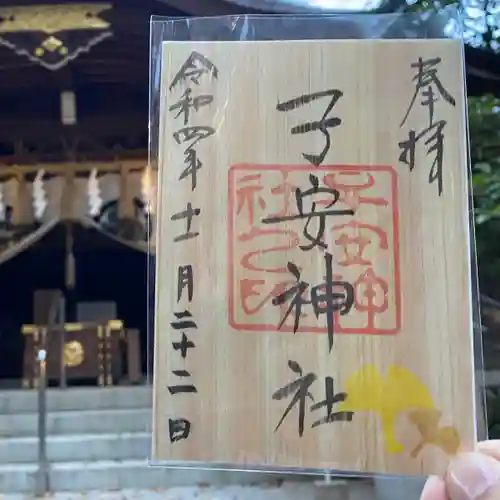 奉拝
子安神社
子安神
社之印
令和四年十一月二十二日